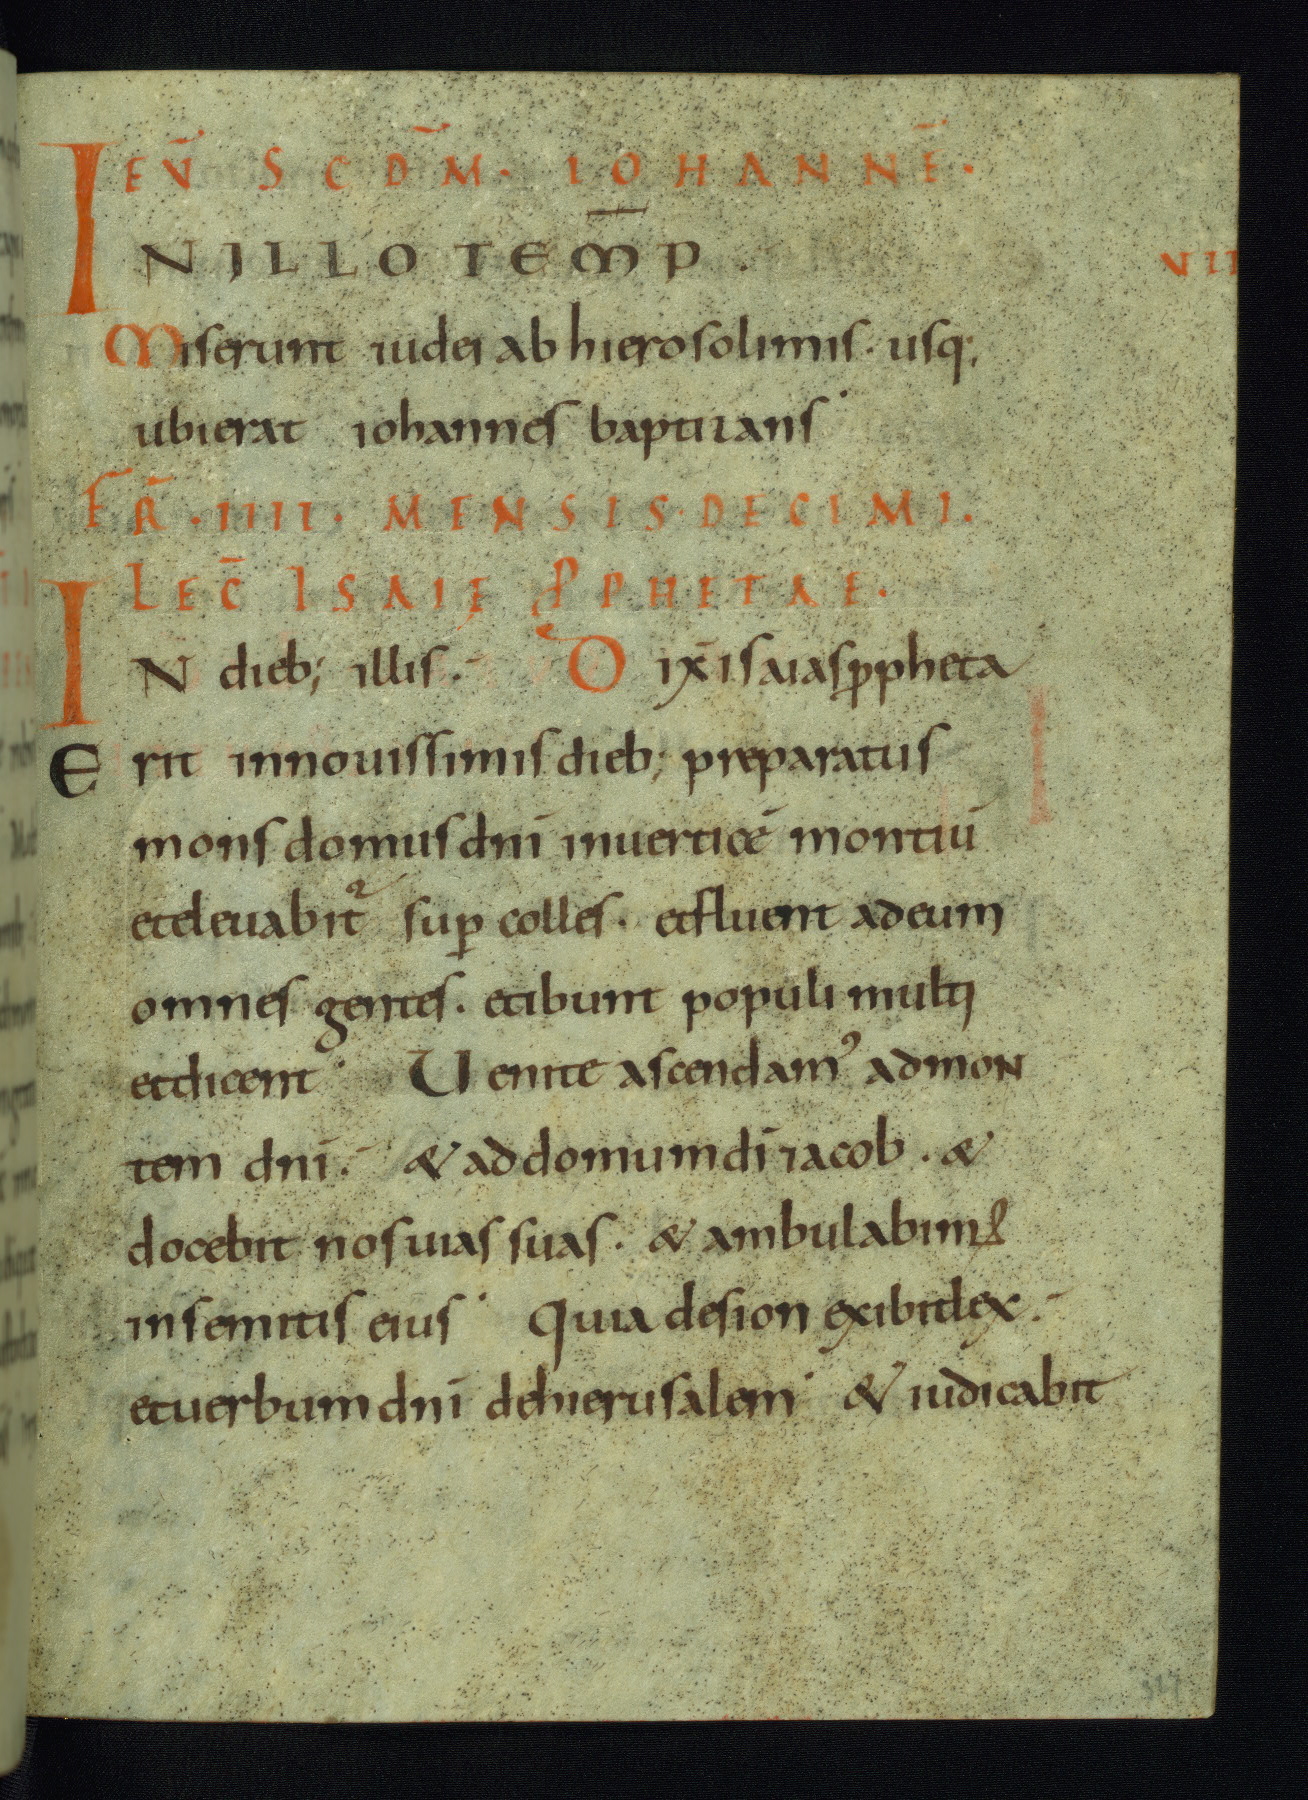 EV̄ SCDM̄. IOHANNĒ.
IN ILLO TEM̄P.
Miserunt iudei ab hierosolimis. usq;
ubi erat iohannes baptizans.
FR̄. IIII. MENSIS. DECIMI.
LEC̄ ISAIĘ ꝓPHETAE.
IN dieb; illis. Dix̄ isaias ꝓpheta
Erit in nouissimis dieb; preparatus
mons domus dn̄i in uertice montiū
et eleuabit᷑ suꝑ colles. et fluent ad eum
omnes gentes. et ibunt populi multi
et dicent. Uenite ascendamꝰ ad mon
tem dn̄i. & ad domum dī iacob. &
docebit nos uias suas. & ambulabimꝰ
in semitis eius. Quia de sion exibit lex.
et uerbum dn̄i de hierusalem. & iudicabit